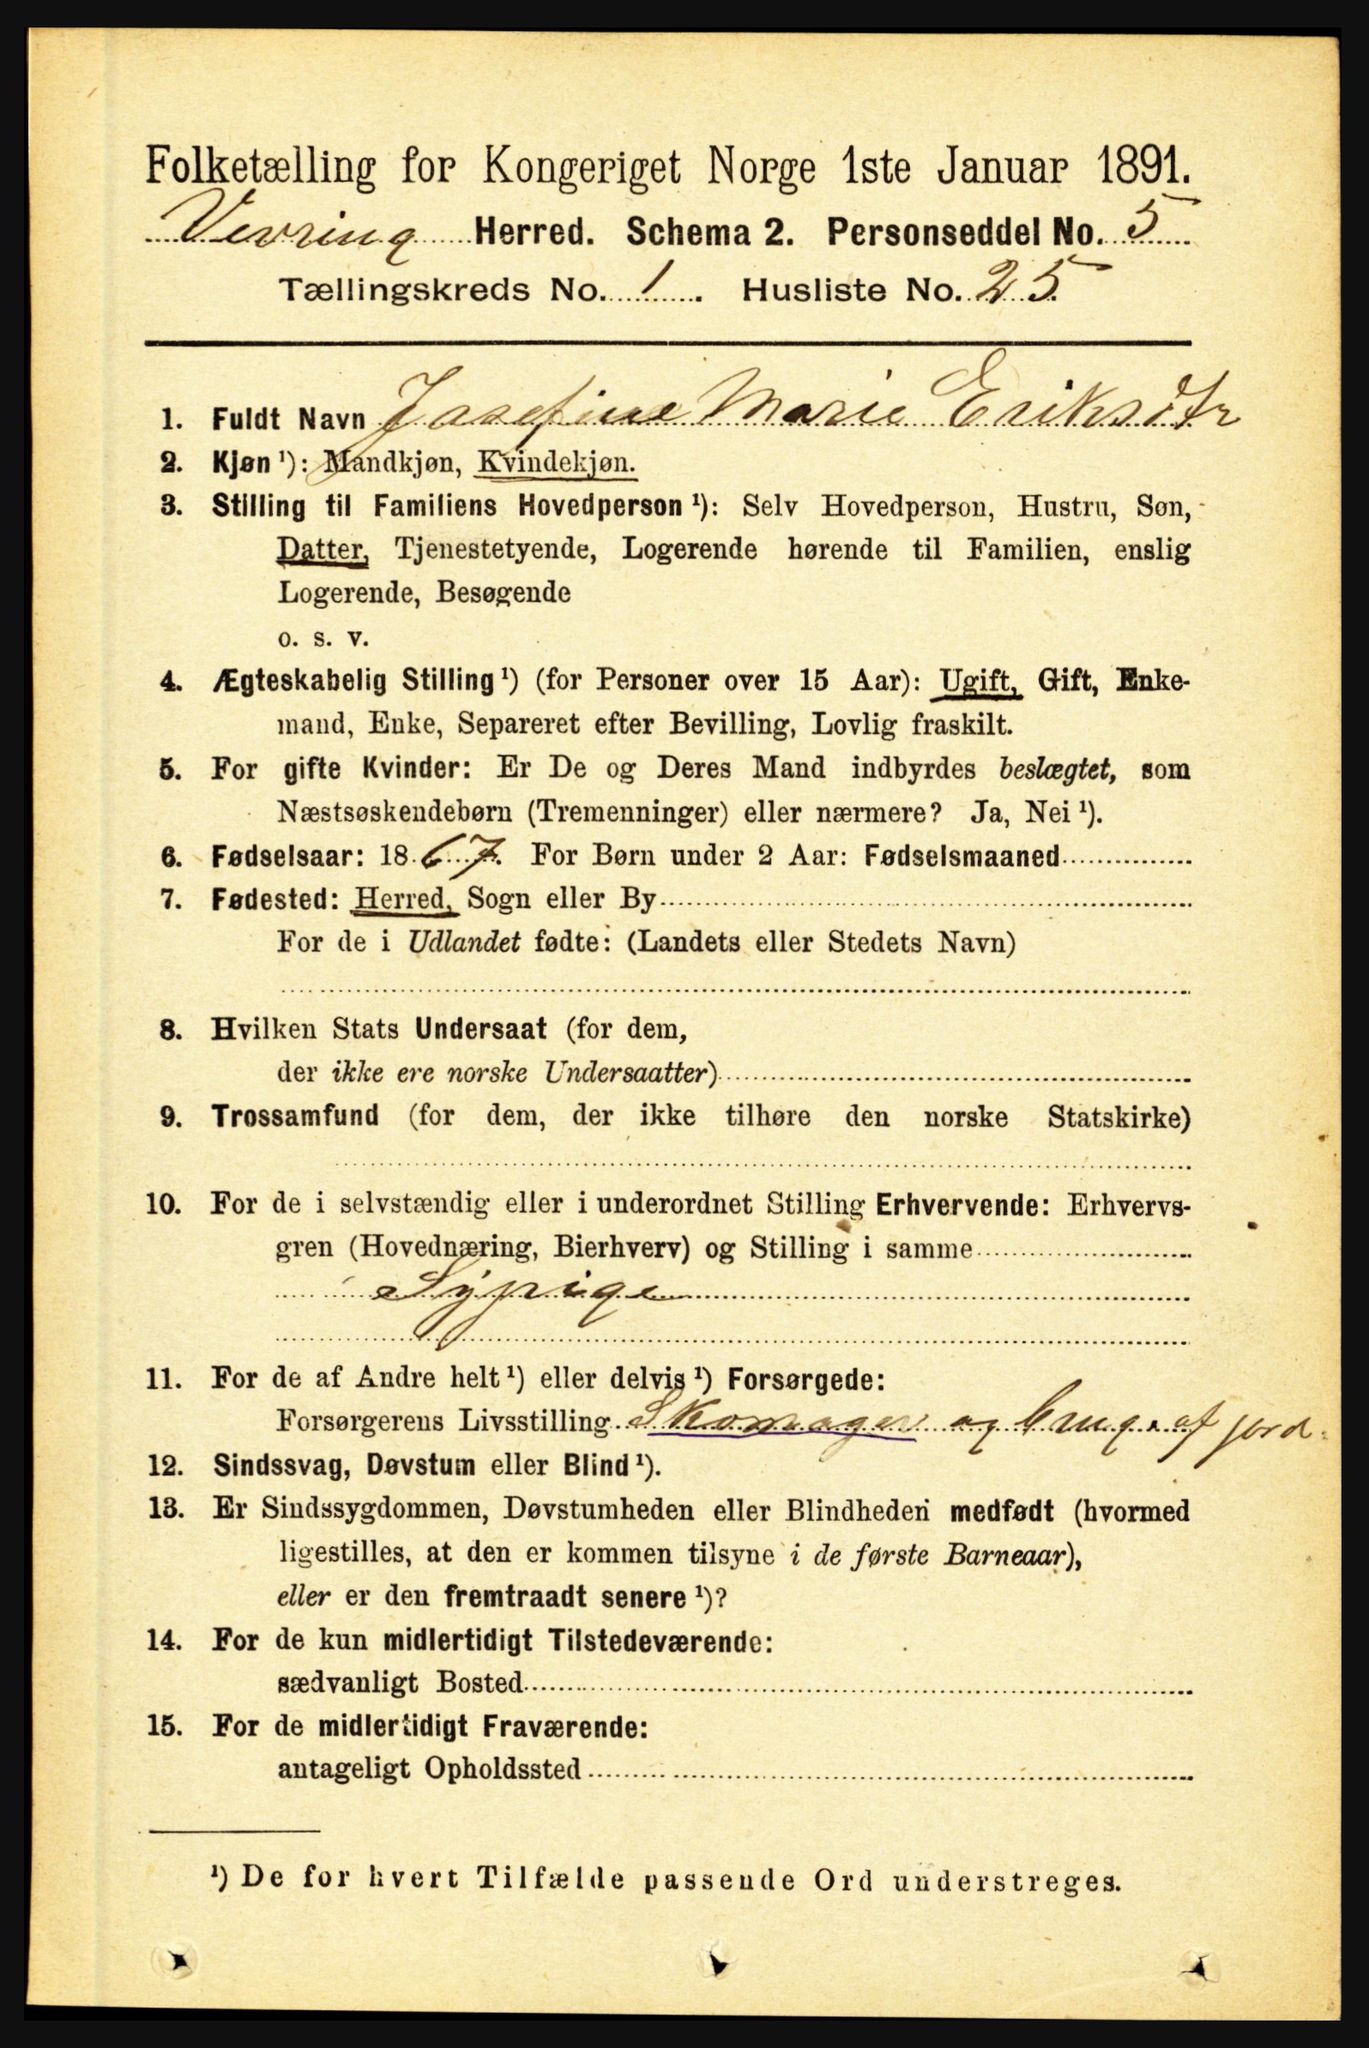 Folketælling for Kongeriget Norge 1ste Januar 1891.
Vevring Herred. Schema 2. Personseddel No. 5
Tællingskreds No. 1. Husliste No. 25
1. Fuldt Navn Josefine Marie Eriksdtr
2. Kjøn ¹): Mandkjøn, Kvindekjøn.
3. Stilling til Familiens Hovedperson ¹): Selv Hovedperson, Hustru, Søn,
Datter, Tjenestetyende, Logerende hørende til Familien, enslig
Logerende, Besøgende
o. s. v.
4. Ægteskabelig Stilling ¹) (for Personer over 15 Aar): Ugift, Gift, Enke-
mand, Enke, Separeret efter Bevilling, Lovlig fraskilt.
5. For gifte Kvinder: Er De og Deres Mand indbyrdes beslægtet, som
Næstsøskendebørn (Tremenninger) eller nærmere? Ja, Nei ¹).
6. Fødselsaar: 1867. For Børn under 2 Aar: Fødselsmaaned
7. Fødested: Herred, Sogn eller By
For de i Udlandet fødte: (Landets eller Stedets Navn)
8. Hvilken Stats Undersaat (for dem,
der ikke ere norske Undersaatter)
9. Trossamfund (for dem, der ikke tilhøre den norske Statskirke)
10. For de i selvstændig eller i underordnet Stilling Erhvervende: Erhvervs-
gren (Hovednæring, Bierhverv) og Stilling i samme
Sypige
11. For de af Andre helt ¹) eller delvis ¹) Forsørgede:
Forsørgerens Livsstilling Skomager og brug. af jord.
12. Sindssvag, Døvstum eller Blind ¹).
13. Er Sindssygdommen, Døvstumheden eller Blindheden medfødt (hvormed
ligestilles, at den er kommen tilsyne i de første Barneaar),
eller er den fremtraadt senere ¹)?
14. For de kun midlertidigt Tilstedeværende:
sædvanligt Bosted
15. For de midlertidigt Fraværende:
antageligt Opholdssted
¹) De for hvert Tilfælde passende Ord understreges.